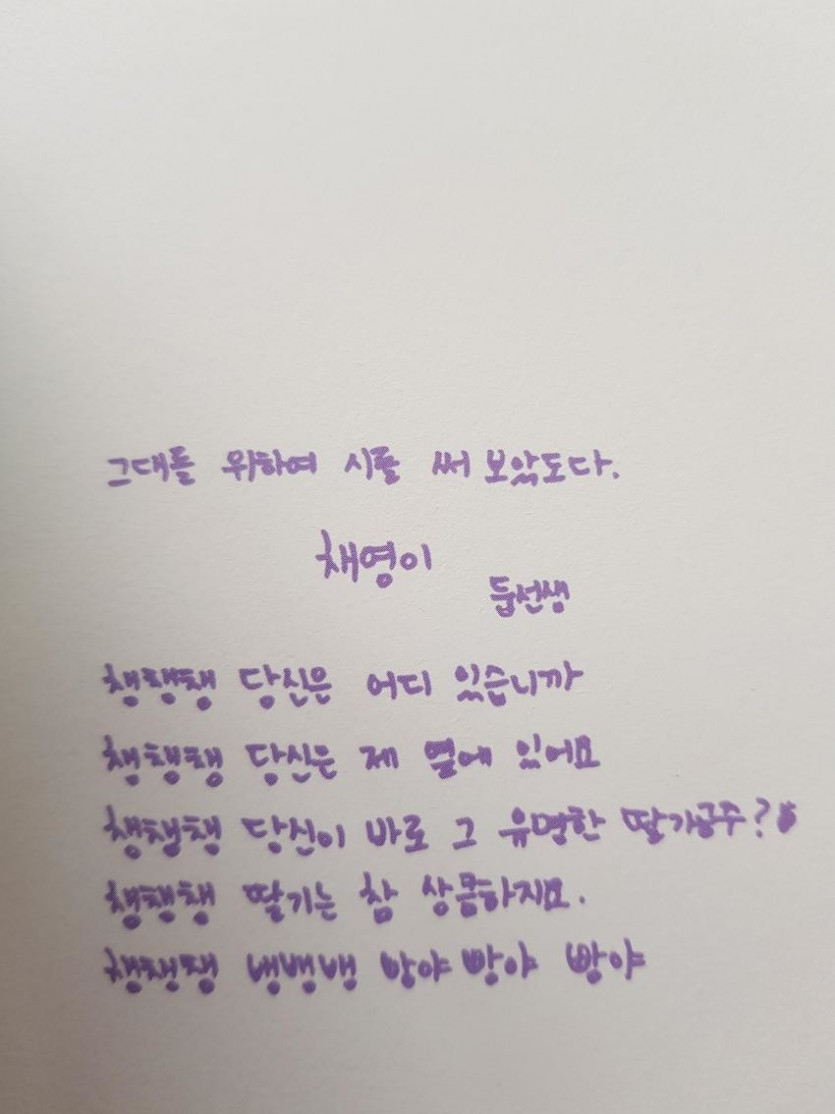 그대들 위하여 시를 써 보았도다.
채영이
둡선생
챙챙챙 당신은 어디 있습니까
챙챙챙 당신은 제 옆에 있어요
챙챙챙 당신이 바로 그 유명한 딸기공주?
챙챙챙 딸기는 참 상콤하지요.
챙챙챙 빵야 빵야